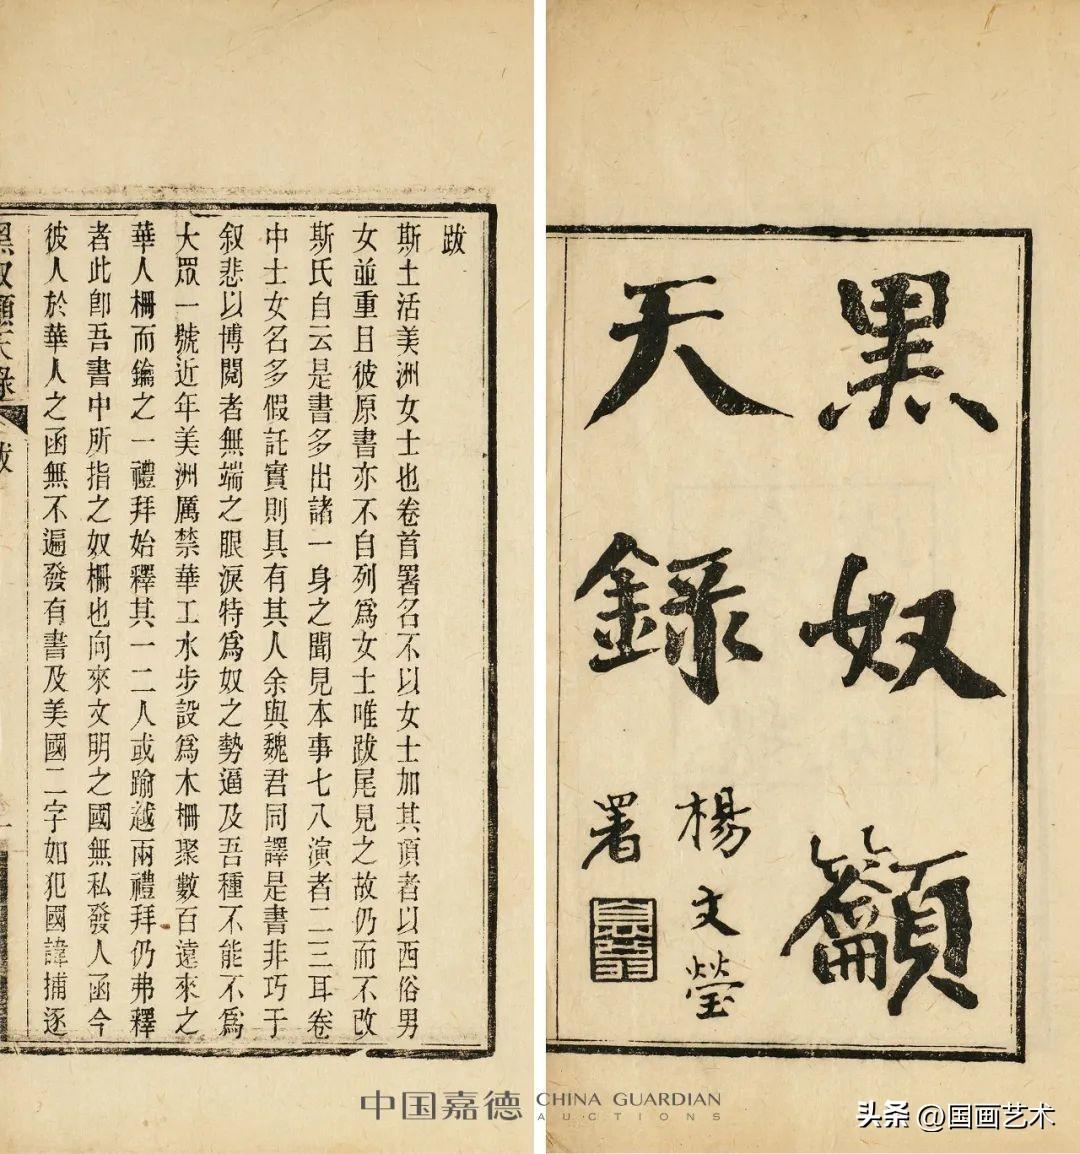 黑奴籲
天錄
楊文瑩
署
跋
斯土活美洲女士也卷首署名不以女士加其頂者以西俗男
女並重且彼原書亦不自列爲女士唯跋尾見之故仍而不改
斯氏自云是書多出諸一身之聞見本事七八演者二三耳卷
中士女名多假託實則具有其人余與魏君同譯是書非巧于
叙悲以博閱者無端之眼淚特爲奴之勢逼及吾種不能不爲
大眾一號近年美洲厲禁華工水步設爲木柵聚數百遠來之
華人柵而鑰之一禮拜始釋其一二人或踰越兩禮拜仍弗釋
者此卽吾書中所指之奴柵也向來文明之國無私發人函今
彼人於華人之函無不遍發有書及美國二字如犯國諱捕逐
黑奴籲天錄 跋 一
中国嘉德 CHINA GUARDIAN AUCTIONS
头条 @国画艺术